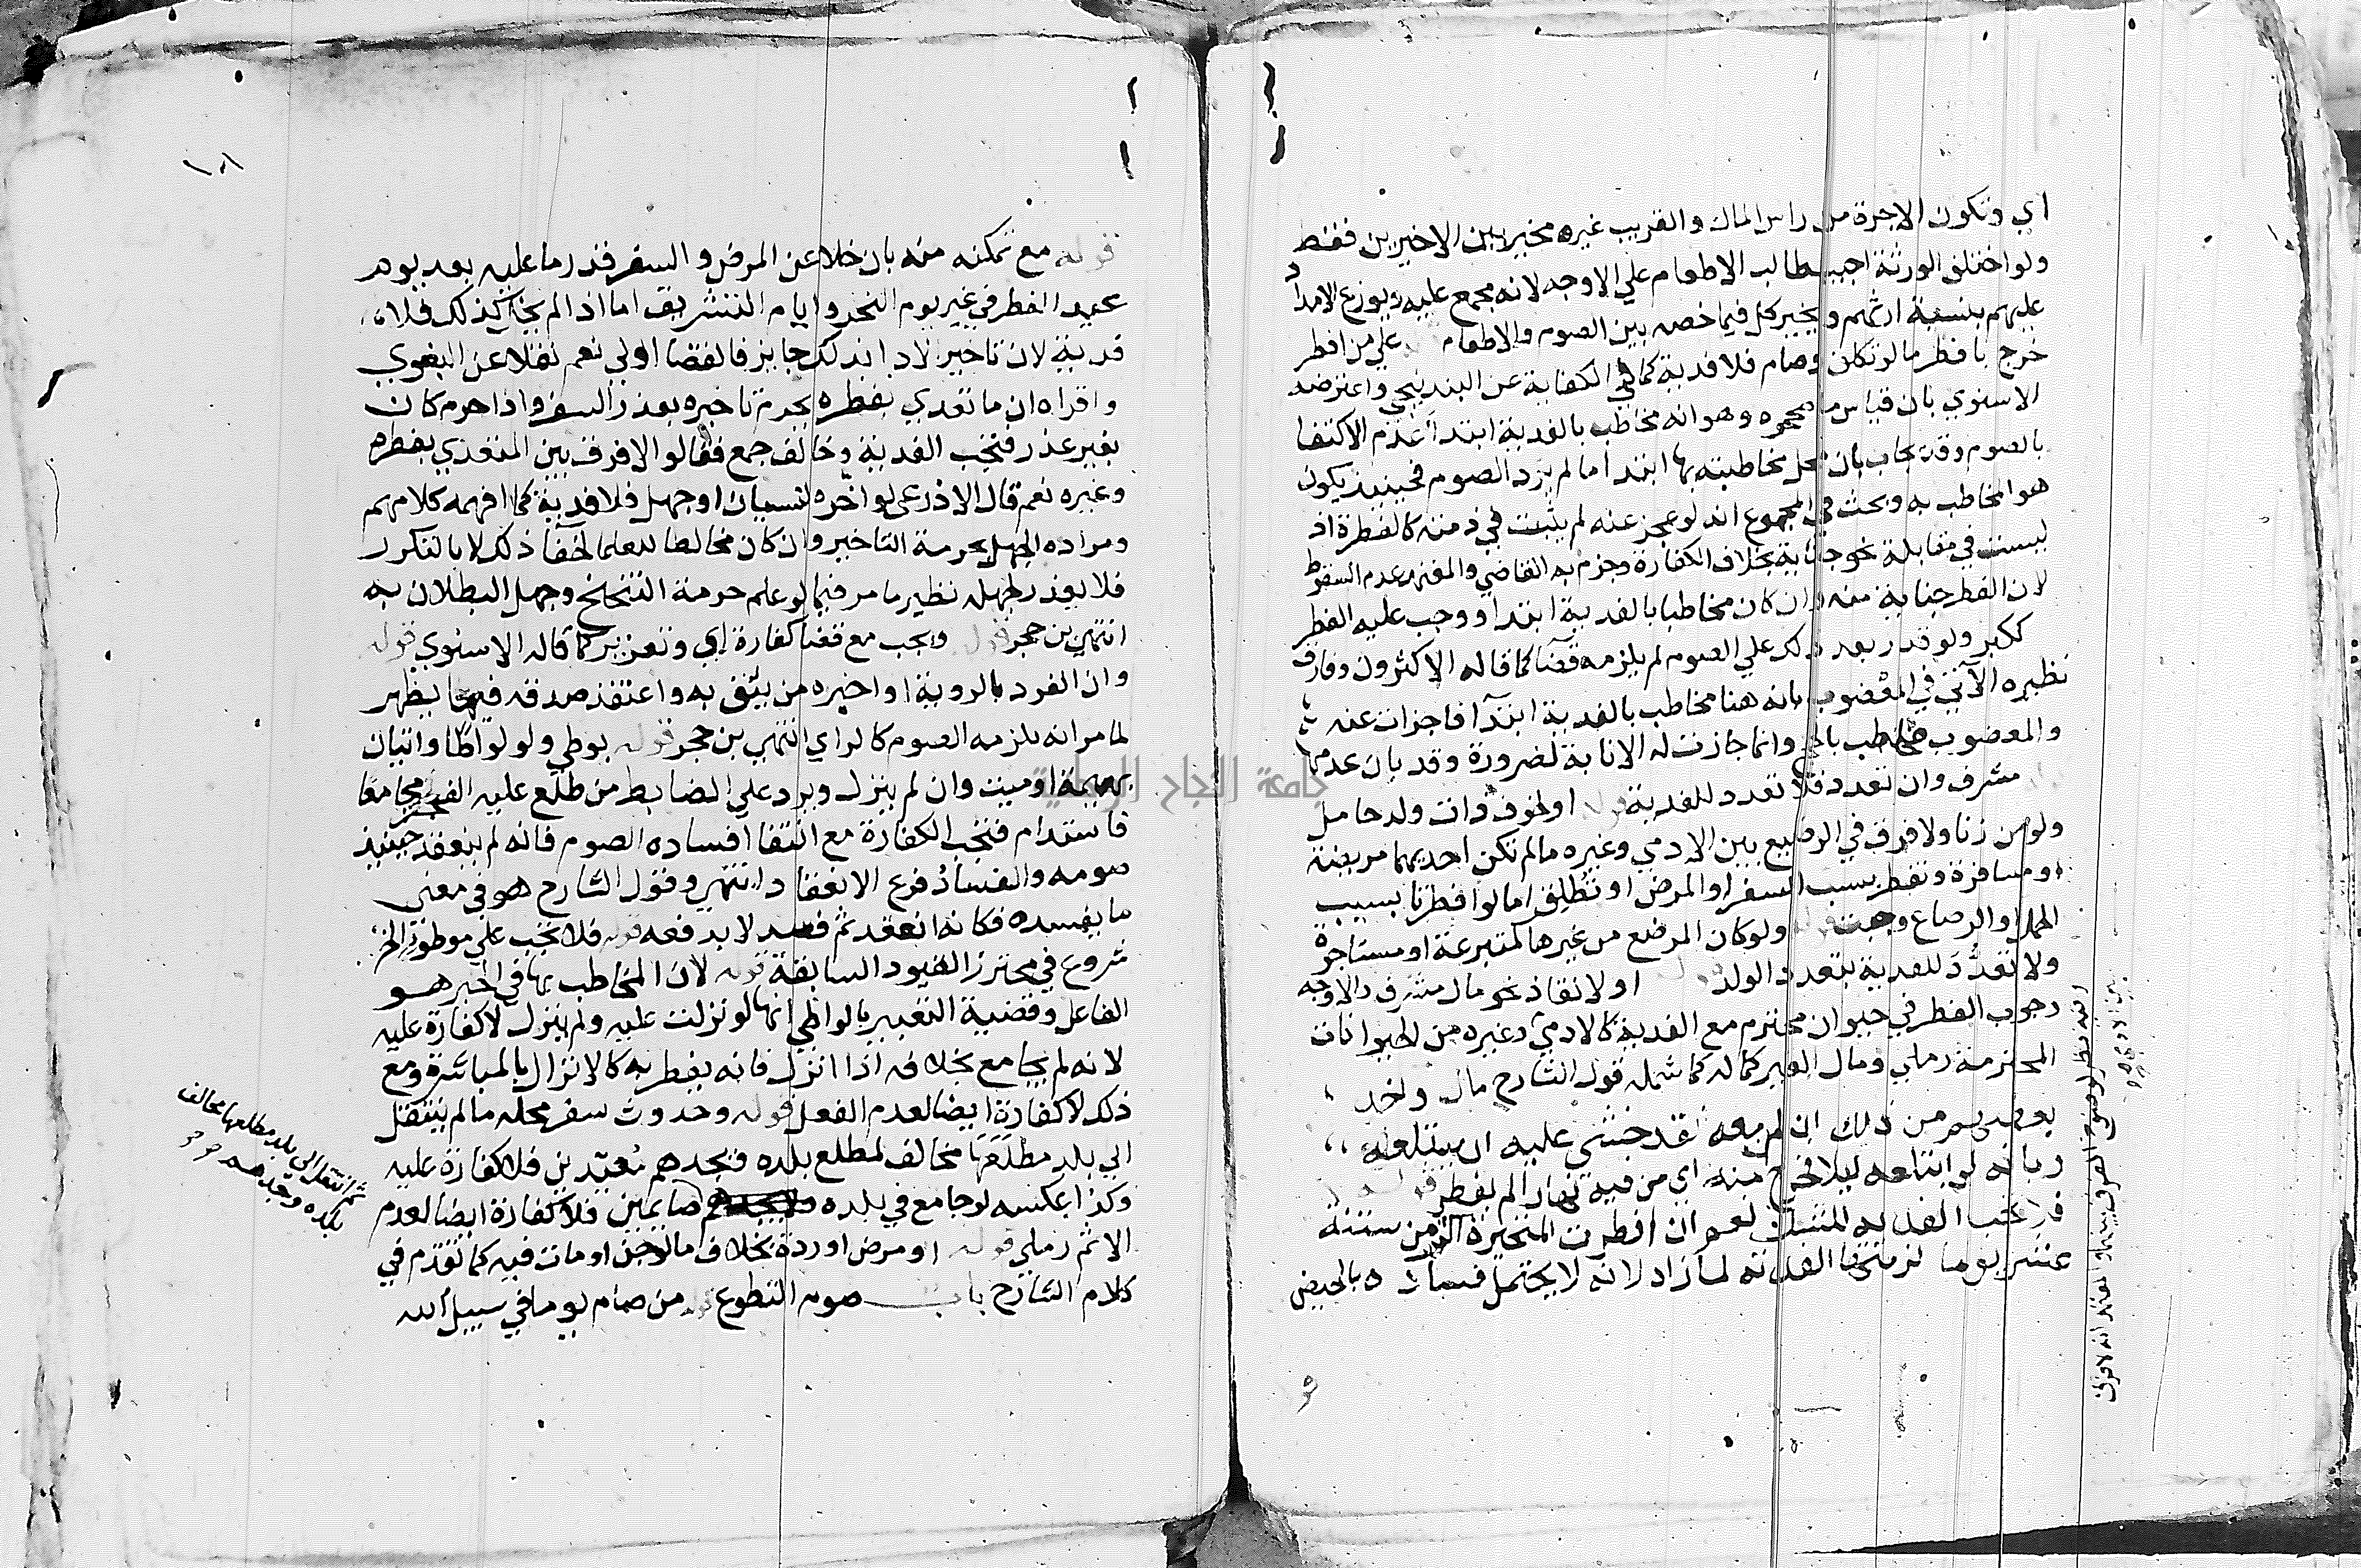 اي وتكون الاجرة من راس المال والقريب غيره مخير بين الاخيرين فقط
ولو اختلف الورثة اجيب طالب الاطعام علي الاوجه لانه مجمع عليه ويوزع الامداد
عليهم بنسبة ارثهم ويخير كل فيما خصه بين الصوم والاطعام علي من افطر
خرج بافطر ما لو تكلف وصام فلا فدية كما في الكفاية عن البندنيجي واعترضه
الاسنوي بان قياس ما صححوه وهو انه مخاطب بالفدية ابتدا عدم الاكتفا
بالصوم وقد يجاب بان محل مخاطبته بها ابتدا ما لم يرد الصوم فحينئذ يكون
هو المخاطب به وبحث في المجموع انه لو عجز عنه لم يثبت في ذمته كالفطرة اذ
ليست في مقابلة نحو جناية بخلاف الكفارة وجزم به القاضي والمعتمد عدم السقوط
لان الفطر جناية منه وان كان مخاطبا بالفدية ابتدا ووجب عليه الفطر
ككبر ولو قدر بعد ذلك علي الصوم لم يلزمه قضا كما قاله الاكثرون وفارق
نظيره الآتي في المعضوب بانه هنا مخاطب بالفدية ابتدآ فاجزات عنه
والمعضوب مخاطب بالحج وانما جازت له الانابة لضرورة وقد بان عدمها
مشرف وان تعدد فلا تعدد للفدية قوله او لخوف ذات ولد حامل
ولو من زنا ولا فرق في الرضيع بين الادمي وغيره ما لم تكن احديهما مريضة
او مسافرة وتفطر بسبب السفر او المرض او تطلق اما لو افطرتا بسبب
الحمل او الرضاع وجبت قوله ولو كان المرضع من غيرها كمتبرعة او مستاجرة
ولا تعدد للفدية بتعدد الولد او لانقاذ نحو مال مشرف والاوجه
وجوب الفطر في حيوان محترم مع الفدية كالادمي وغيره من الحيوانات
المحترمة رملي ومال الغير كماله كما شمله قول الشارح مال
من ذلك ان لم عليه ان يبتلعه
لو ابتلعه ليلا فخرج منه اي من فيه نهارا لم يفطر قوله
ان افطرت المتحيرة اكثر من ستة
عشر يوما لزمتها الفدية لما زاد لانه لا يحتمل فساده بالحيض
١٥١
قوله مع تمكنه منه بان خلا عن المرض والسفر قدر ما عليه بعد يوم
عيد الفطر في غير يوم النحر وايام التشريق اما اذا لم يخل كذلك فلا
فدية لان تاخير الادا بذلك جايز فالقضا اولي نعم نقلا عن البغوي
واقراه ان ما تعدي بفطره يحرم تاخيره بعذر السفر واذا حرم كان
بغير عذر فتجب الفدية وخالف جمع فقالوا لا فرق بين المتعدي بفطره
وغيره نعم قال الاذرعي لو اخره لنسيان او جهل فلا فدية كما افهمه كلامهم
ومراده الجهل بحرمة التاخير وان كان مخالطا للعلما لخفآ ذلك لا بالتكرر
فلا يعذر لجهله نظير ما مر فيما لو علم حرمة التنحنح وجهل البطلان به
انتهي بن حجر قوله ويجب مع قضا كفارة اي وتعزير كما قاله الاسنوي قوله
وان انفرد بالروية او اخبره من يثق به واعتقد صدقه فيما يظهر
لما مر انه يلزمه الصوم كالراي انتهي بن حجر قوله بوطي ولو لواطا واتيان
بهيمة او ميت وان لم ينزل ويرد علي الضابط من طلع عليه الفجر مجامعا
فاستدام فتجب الكفارة مع انتفا افساده الصوم فانه لم ينعقد حينئذ
صومه والفساد فرع الانعقاد انتهي وقول الشارح هو في معني
ما يفسده فكانه انعقد ثم فسد لا بد فعه قوله فلا تجب علي موطوة الخ
شروع في محترز القيود السابقة قوله لان المخاطب بها في الخبر هو
الفاعل وقضية التعبير بالواطي انها لو نزلت عليه ولم ينزل لا كفارة عليه
لانه لم يجامع بخلافه اذا انزل فانه يفطر به كالانزال بالمباشرة ومع
ذلك لا كفارة ايضا لعدم الفعل قوله وحدوث سفر محله ما لم ينتقل
الي بلد مطلعها مخالف لمطلع بلده فيجدهم معيدين فلا كفارة عليه
وكذا عكسه لو جامع في بلده صايمين فلا كفارة ايضا لعدم
الاثم رملي قوله او مرض او ردة بخلاف ما لو جن او مات فيه كما تقدم في
كلام الشارح باب صوم التطوع قوله من صام يوما في سبيل الله
ثم انتقل الى بلد مطلعها مخالف
بلده وجدهم
جامعة النجاح الوطنية